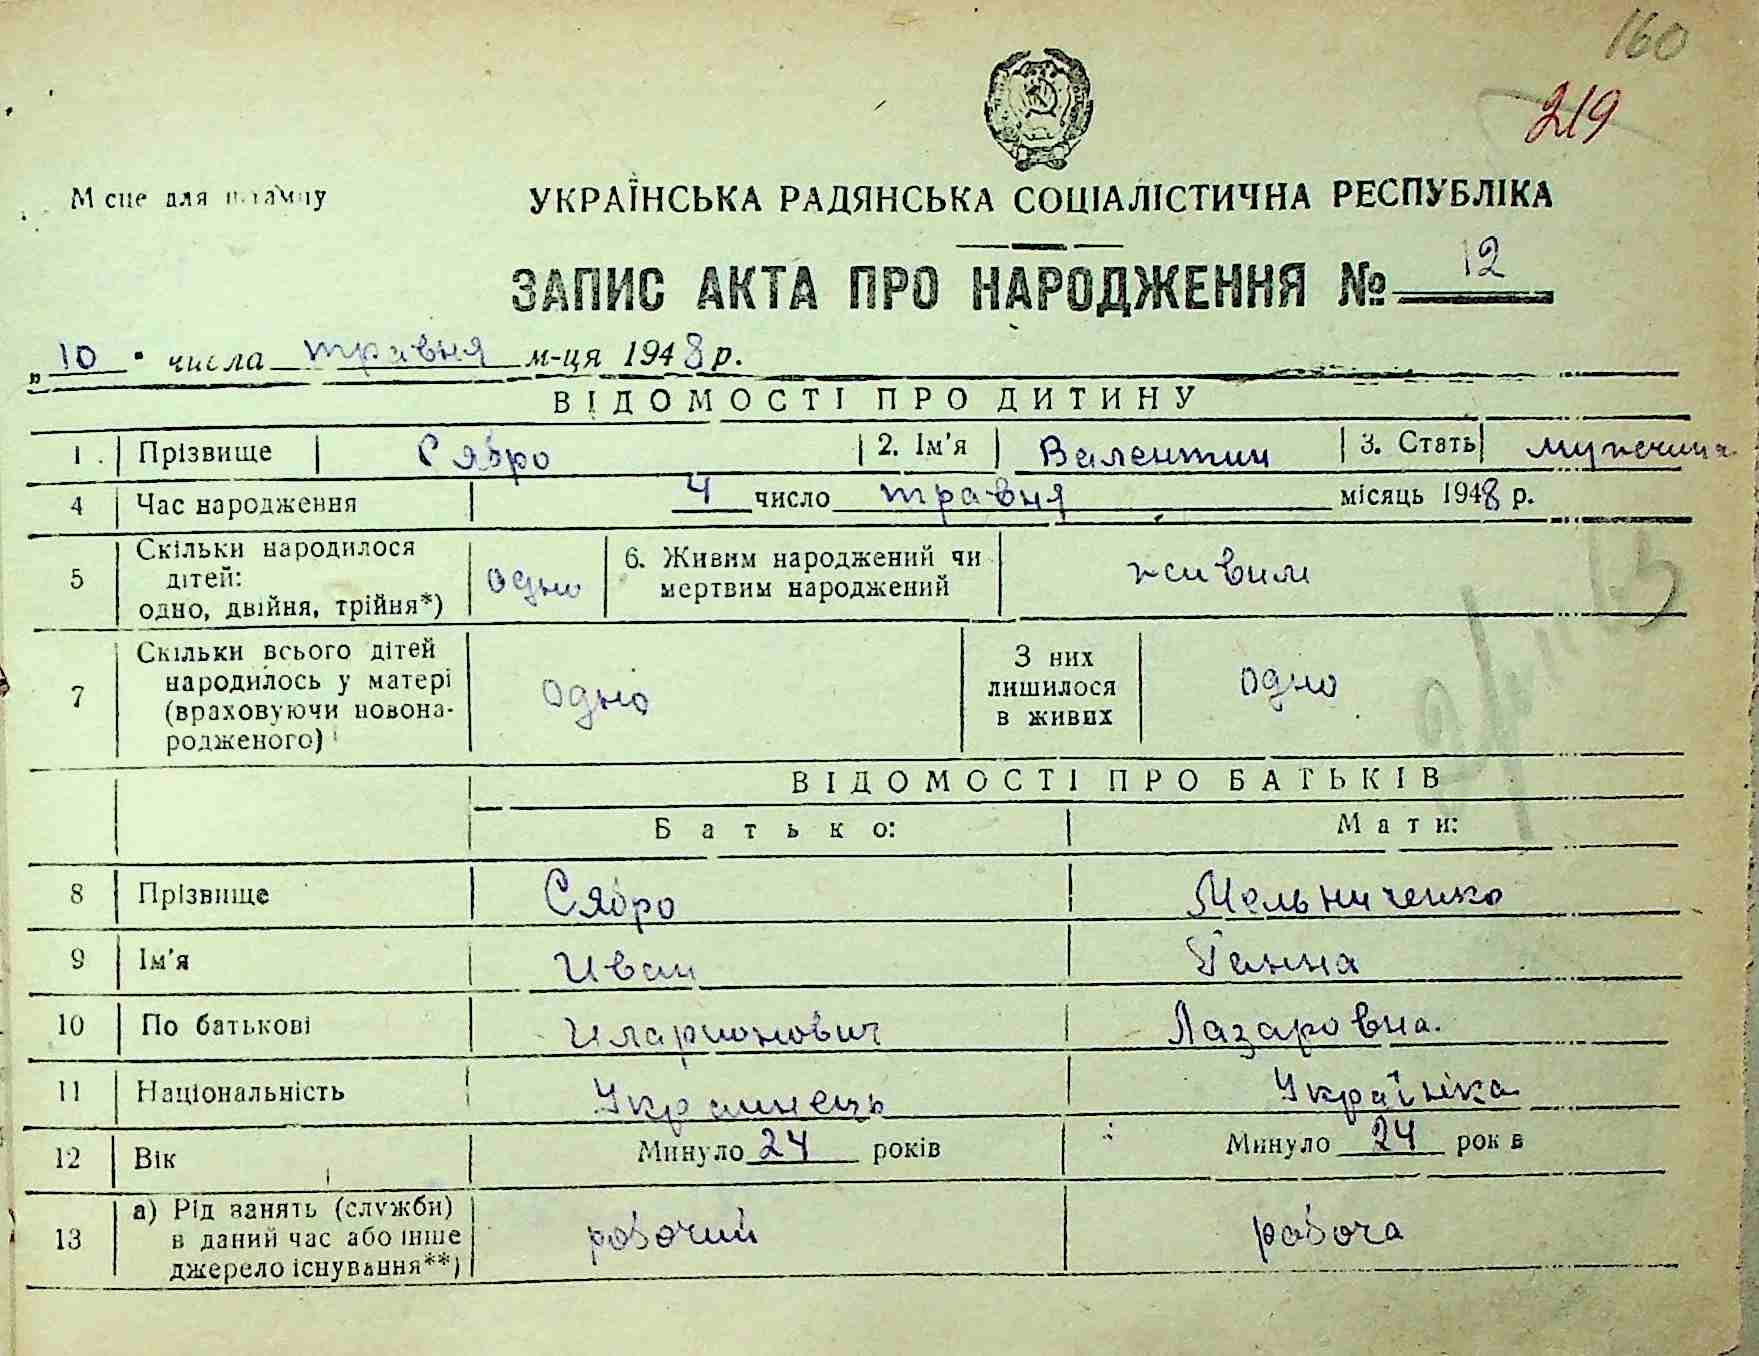 160
219
М сце для штампу
УКРАЇНСЬКА РАДЯНСЬКА СОЦІАЛІСТИЧНА РЕСПУБЛІКА
ЗАПИС АКТА ПРО НАРОДЖЕННЯ № 12
„10" числа травня м-ця 1948 р.
ВІДОМОСТІ ПРО ДИТИНУ
1. Прізвище Сябро 2. Ім'я Валентин 3. Стать мужчина
4 Час народження 4 число травня місяць 1948 р.
5 Скільки народилося
дітей:
одно, двійня, трійня*) одно
6. Живим народжений чи
мертвим народжений живим
7 Скільки всього дітей
народилось у матері
(враховуючи новона-
родженого) одно
З них
лишилося
в живих одно
ВІДОМОСТІ ПРО БАТЬКІВ
Батько: Мати:
8 Прізвище Сябро Мельниченко
9 Ім'я Иван Ганна
10 По батькові Иларионович Лазаровна.
11 Національність Украинець Українка
12 Вік Минуло 24 років Минуло 24 рок в
13 а) Рід занять (служби)
в даний час або інше
джерело існування**) робочий робоча